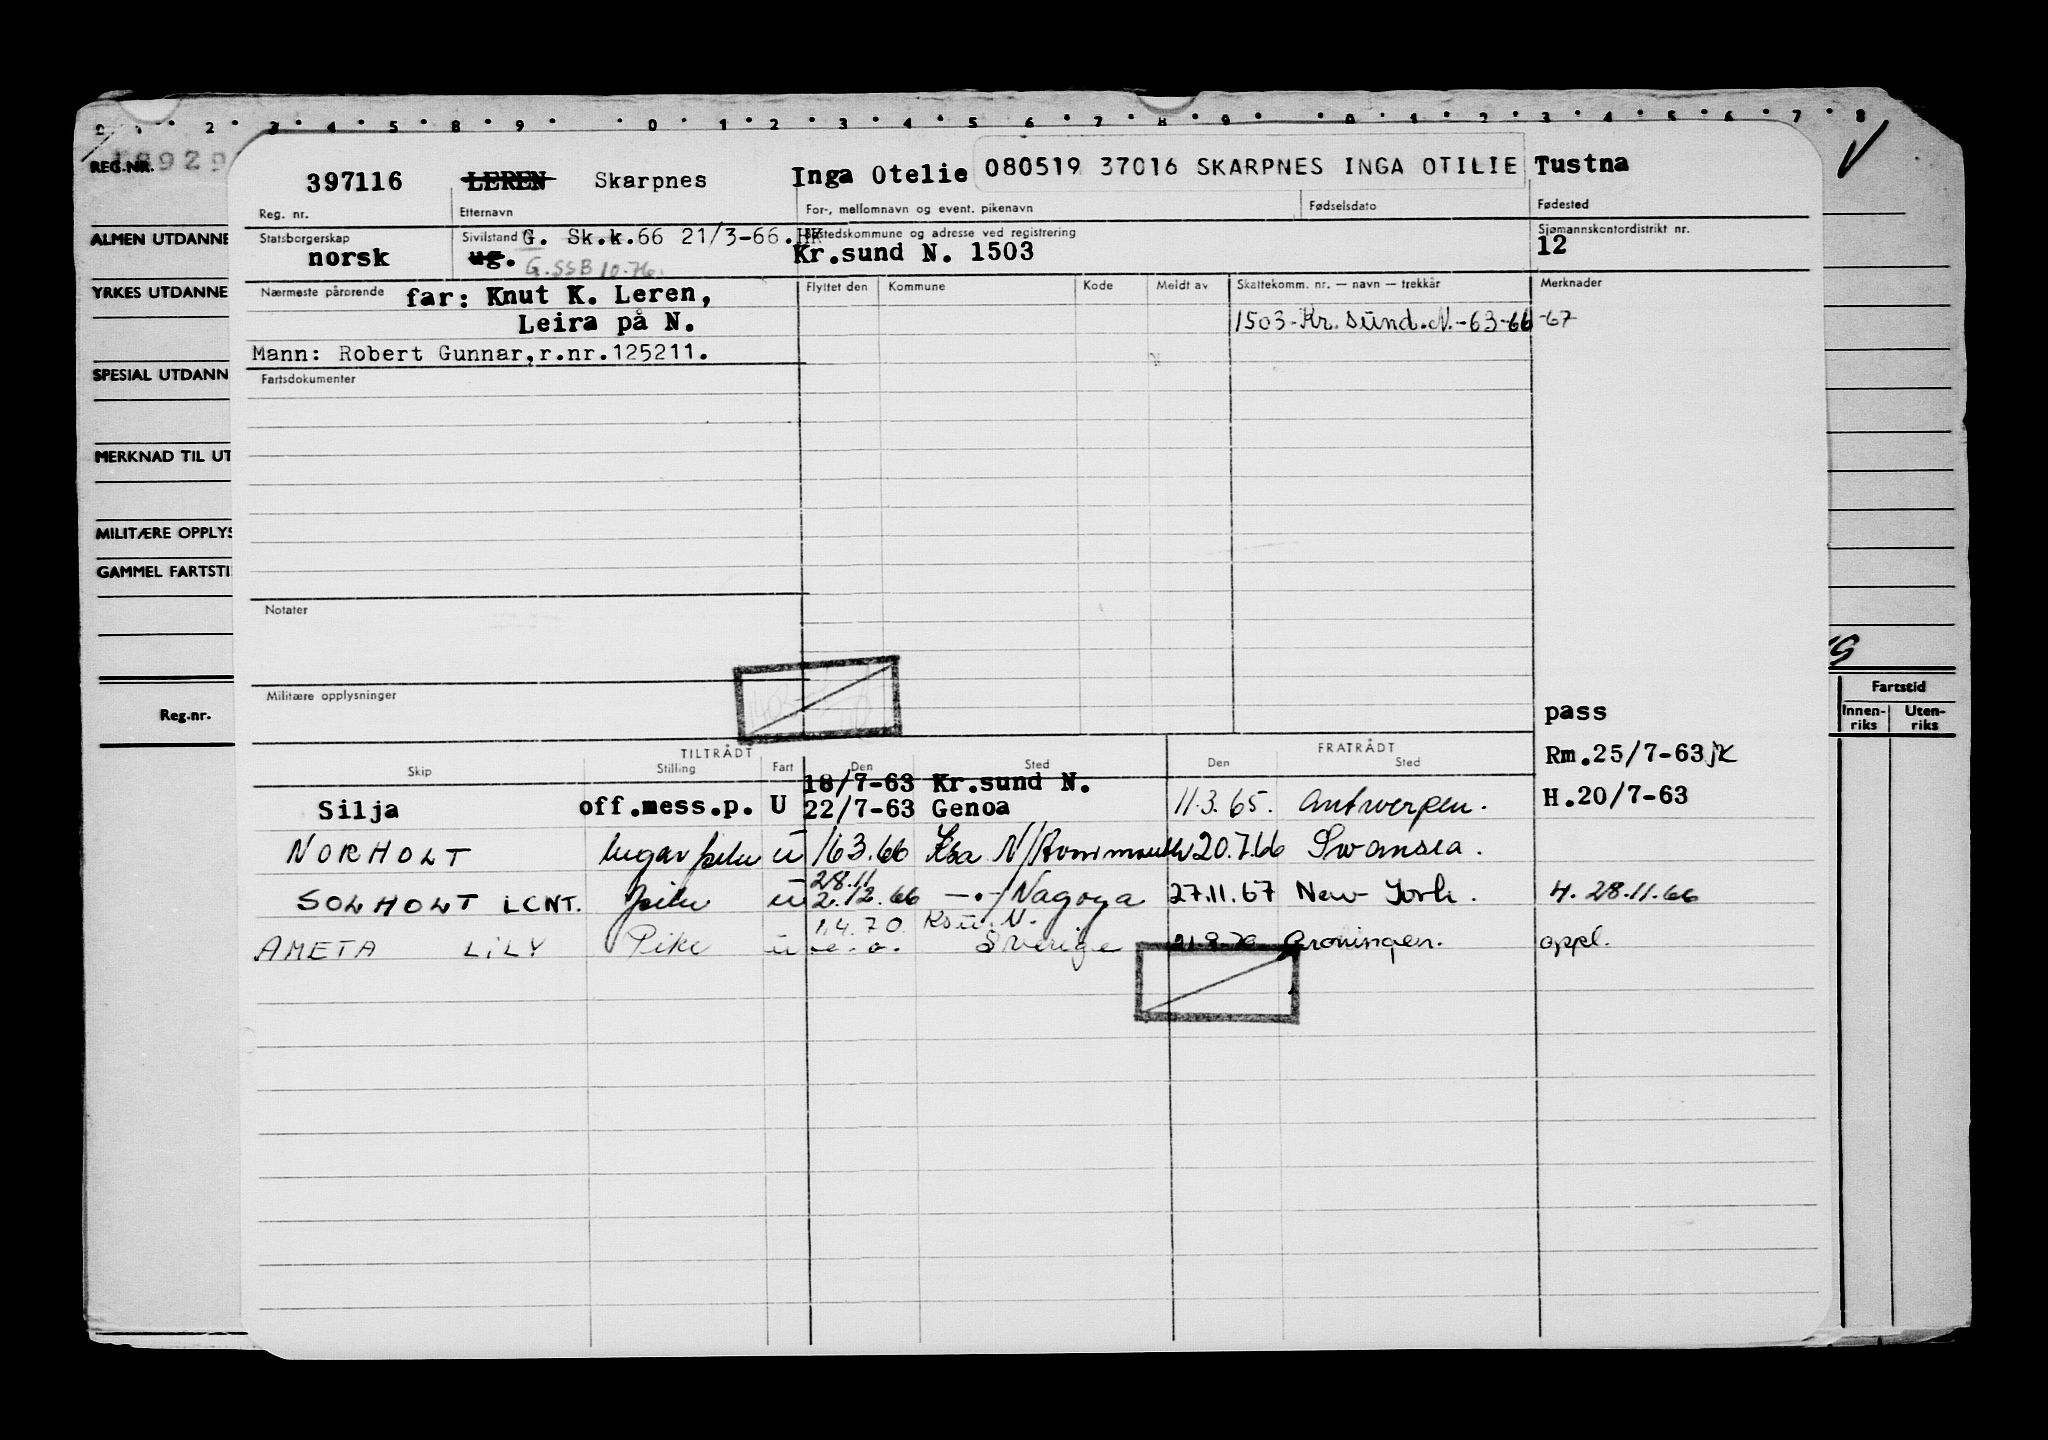 REG.NR.
397116 LEREN Skarpnes Inga Otelie 080519 37016 SKARPNES INGA OTILIE Tustna
Reg. nr. Etternavn For-, mellomnavn og event. pikenavn Fødselsdato Fødested
ALMEN UTDANNE
Statsborgerskap Sivilstand G. Sk.k.66 21/3-66.HK Bostedskommune og adresse ved registrering Sjømannskontordistrikt nr.
norsk ug. G.SSB 10.76. Kr.sund N. 1503 12
YRKES UTDANNE
Nærmeste pårørende far: Knut K. Leren, Flyttet den Kommune Kode Meldt av Skattekomm. nr. — navn — trekkår Merknader
Leira på N. 1503-Kr.sund.N.-63-66-67
Mann: Robert Gunnar,r.nr.125211.
SPESIAL UTDANN
Fartsdokumenter
MERKNAD TIL UT
MILITÆRE OPPLYS
GAMMEL FARTSTI
Notater
Militære opplysninger
Reg.nr.
Fartstid
Innen-riks Uten-riks
pass
TILTRÅDT FRATRÅDT Rm.25/7-63
Skip Stilling Fart Den Sted Den Sted
18/7-63 Kr.sund N.
Silja off.mess.p. U 22/7-63 Genoa 11.3.65. Antwerpen. H.20/7-63
NORHOLT lugarpike u 163.66 Ksa N/Avonmouth 20.7.66 Swansea.
28.11
SOLHOLT LCNT. pike u 2.12.66 —•—/Nagoya 27.11.67 New York. H. 28.11.66
1.4.70. Ksu. N.
AMETA LILY Pike u Sverige 21.8.70 Groningen. oppl.